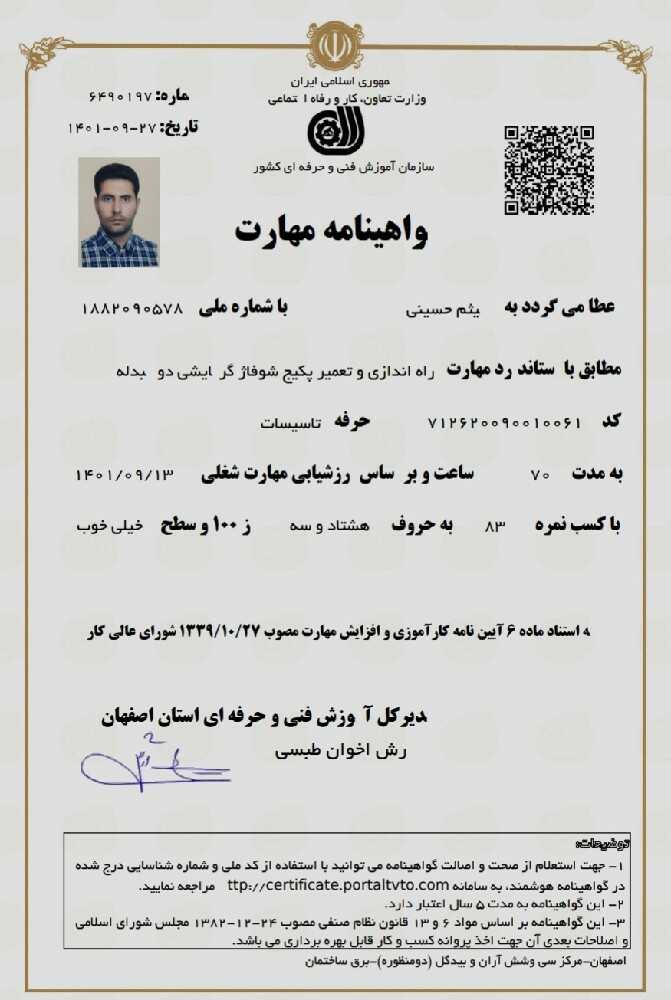 مهوری اسلامی ایران
وزارت تعاون، کار و رفاه ا تماعی
ماره: ۶۴۹۰۱۹۷
تاریخ: ۱۴۰۱-۰۹-۲۷
سازمان آموزش فنی و حرفه ای کشور
واهینامه مهارت
عطا می گردد به یثم حسینی با شماره ملی ۱۸۸۲۰۹۰۵۷۸
مطابق با ستاند رد مهارت راه اندازی و تعمیر پکیج شوفاژ گر ایشی دو بدله
کد ۷۱۲۶۲۰۰۹۰۰۱۰۰۶۱ حرفه تاسیسات
به مدت ۷۰ ساعت و بر ساس رزشیابی مهارت شغلی ۱۴۰۱/۰۹/۱۳
با کسب نمره ۸۳ به حروف هشتاد و سه ز ۱۰۰ و سطح خیلی خوب
به استناد ماده ۶ آیین نامه کارآموزی و افزایش مهارت مصوب ۱۳۳۹/۱۰/۲۷ شورای عالی کار
دیرکل آ وزش فنی و حرفه ای استان اصفهان
رش اخوان طبسی
توضیحات:
۱- جهت استعلام از صحت و اصالت گواهینامه می توانید با استفاده از کد ملی و شماره شناسایی درج شده
در گواهینامه هوشمند، به سامانه ttp://certificate.portaltvto.com مراجعه نمایید.
۲- این گواهینامه به مدت ۵ سال اعتبار دارد.
۳- این گواهینامه بر اساس مواد ۶ و ۱۳ قانون نظام صنفی مصوب ۲۴-۱۲-۱۳۸۲ مجلس شورای اسلامی
و اصلاحات بعدی آن جهت اخذ پروانه کسب و کار قابل بهره برداری می باشد.
اصفهان-مرکز سی وشش آران و بیدگل (دومنظوره)-برق ساختمان